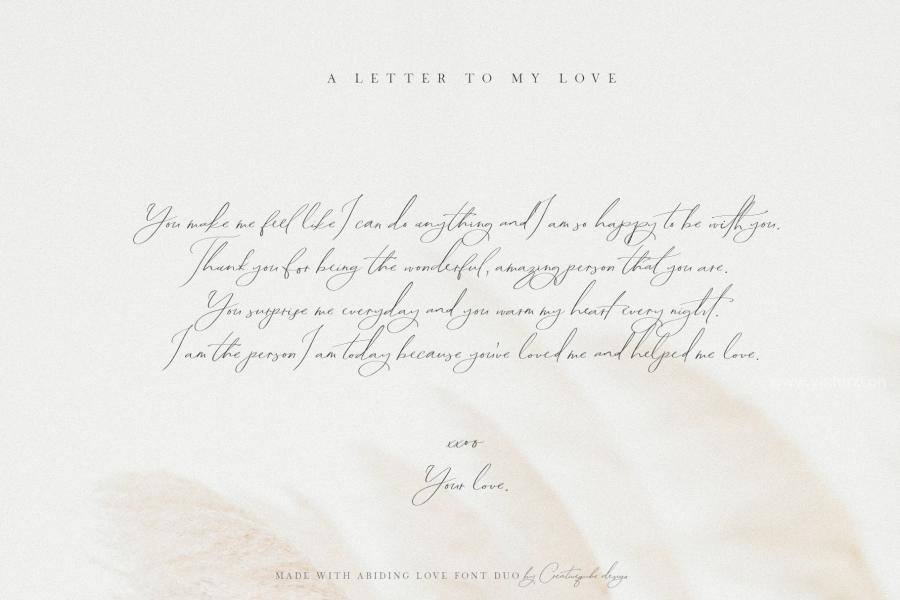 A LETTER TO MY LOVE
You make me feel like I can do anything and I am so happy to be with you.
Thank you for being the wonderful, amazing person that you are.
You surprise me everyday and you warm my heart every night.
I am the person I am today because you've loved me and helped me love.
xxoo
Your love.
MADE WITH ABIDING LOVE FONT DUO by Creativeqube design